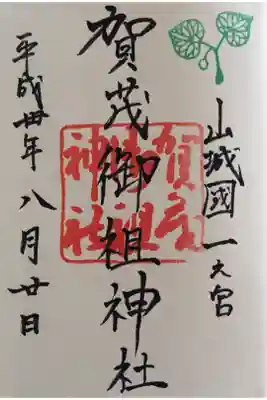 山城國一之宮
賀茂御祖神社
平成卅年八月廿日
賀茂
御祖
神社